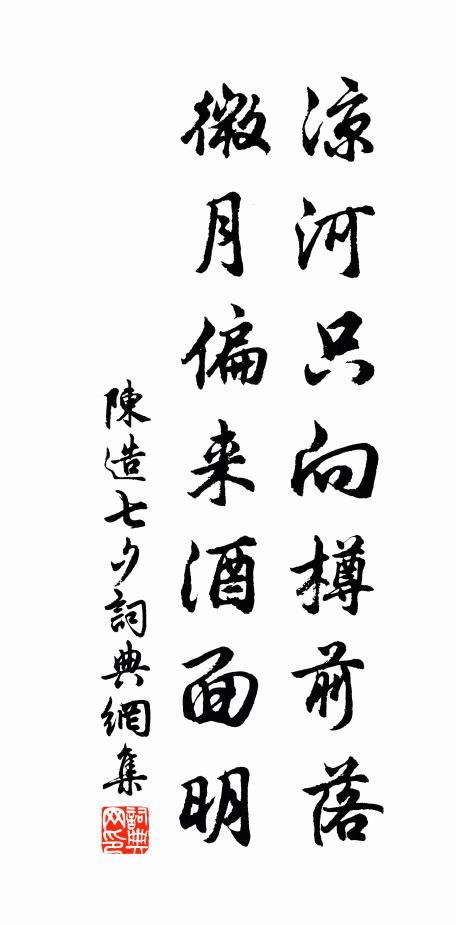 涼河只向樽前落
微月偏来酒面明
陳造七夕詞典網集
詞典网印